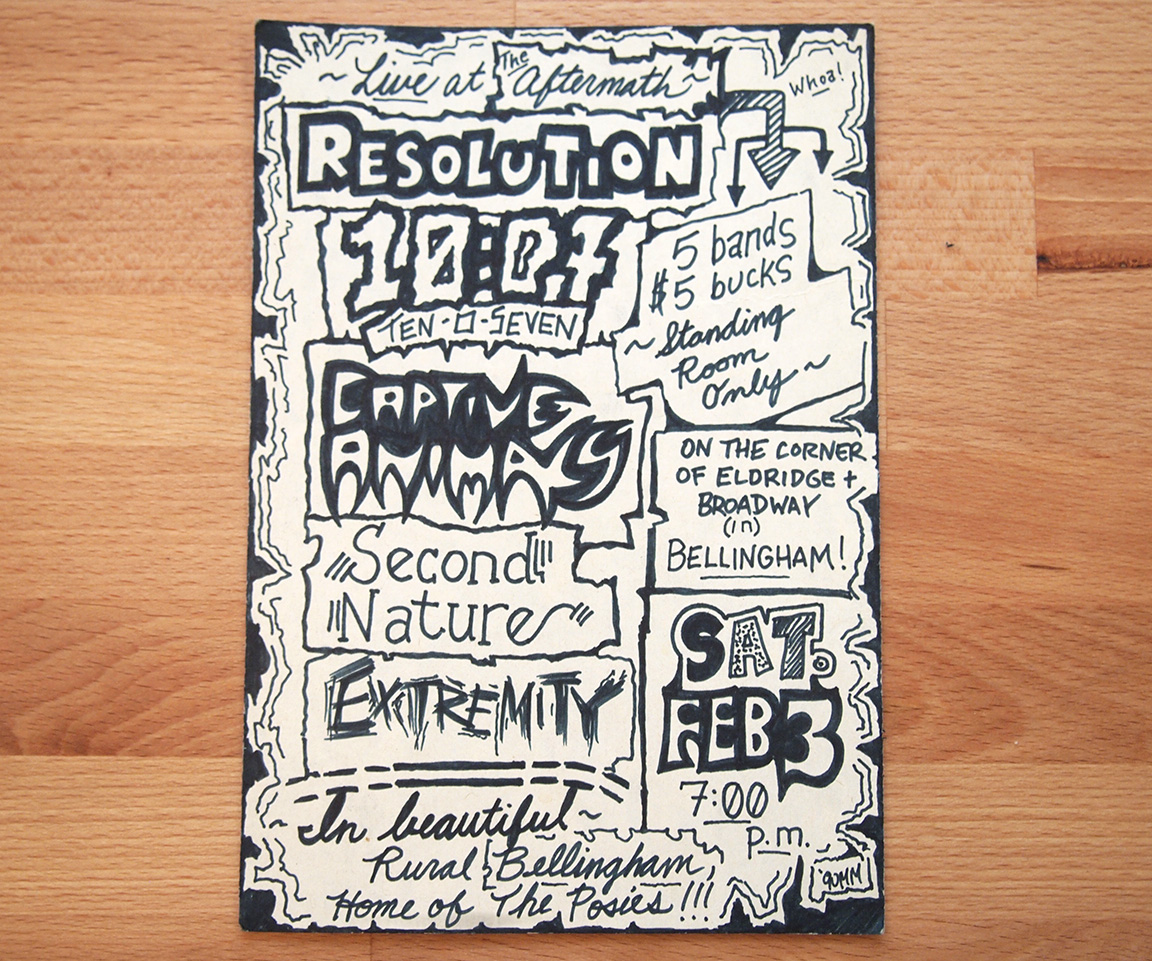 ~ Live at The Aftermath ~
Whoa!
RESOLUTION
10:07
TEN-O-SEVEN
5 bands
$5 bucks
~ Standing
Room
Only ~
CAPTIVE
ANIMALS
ON THE CORNER
OF ELDRIDGE +
BROADWAY
(in)
BELLINGHAM!
Second
Nature
EXTREMITY
SAT.
FEB 3
7:00
p.m.
In beautiful ~
Rural Bellingham,
Home of The Posies!!!
'90MM